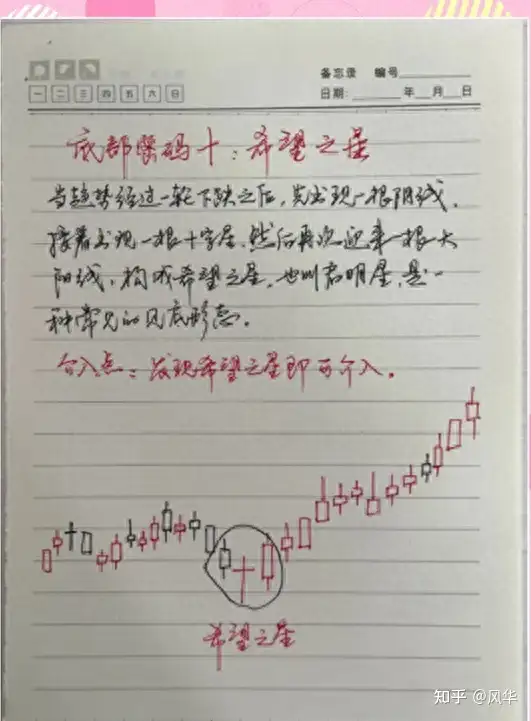 备忘录 编号
一 二 三 四 五 六 日
日期: 年 月 日
底部密码十:希望之星
当趋势经过一轮下跌之后,先出现一根阴线,
接着出现一根十字星,然后再次迎来一根大
阳线,构成希望之星,也叫启明星,是一
种常见的见底形态。
介入点:发现希望之星即可介入。
希望之星
知乎 @风华